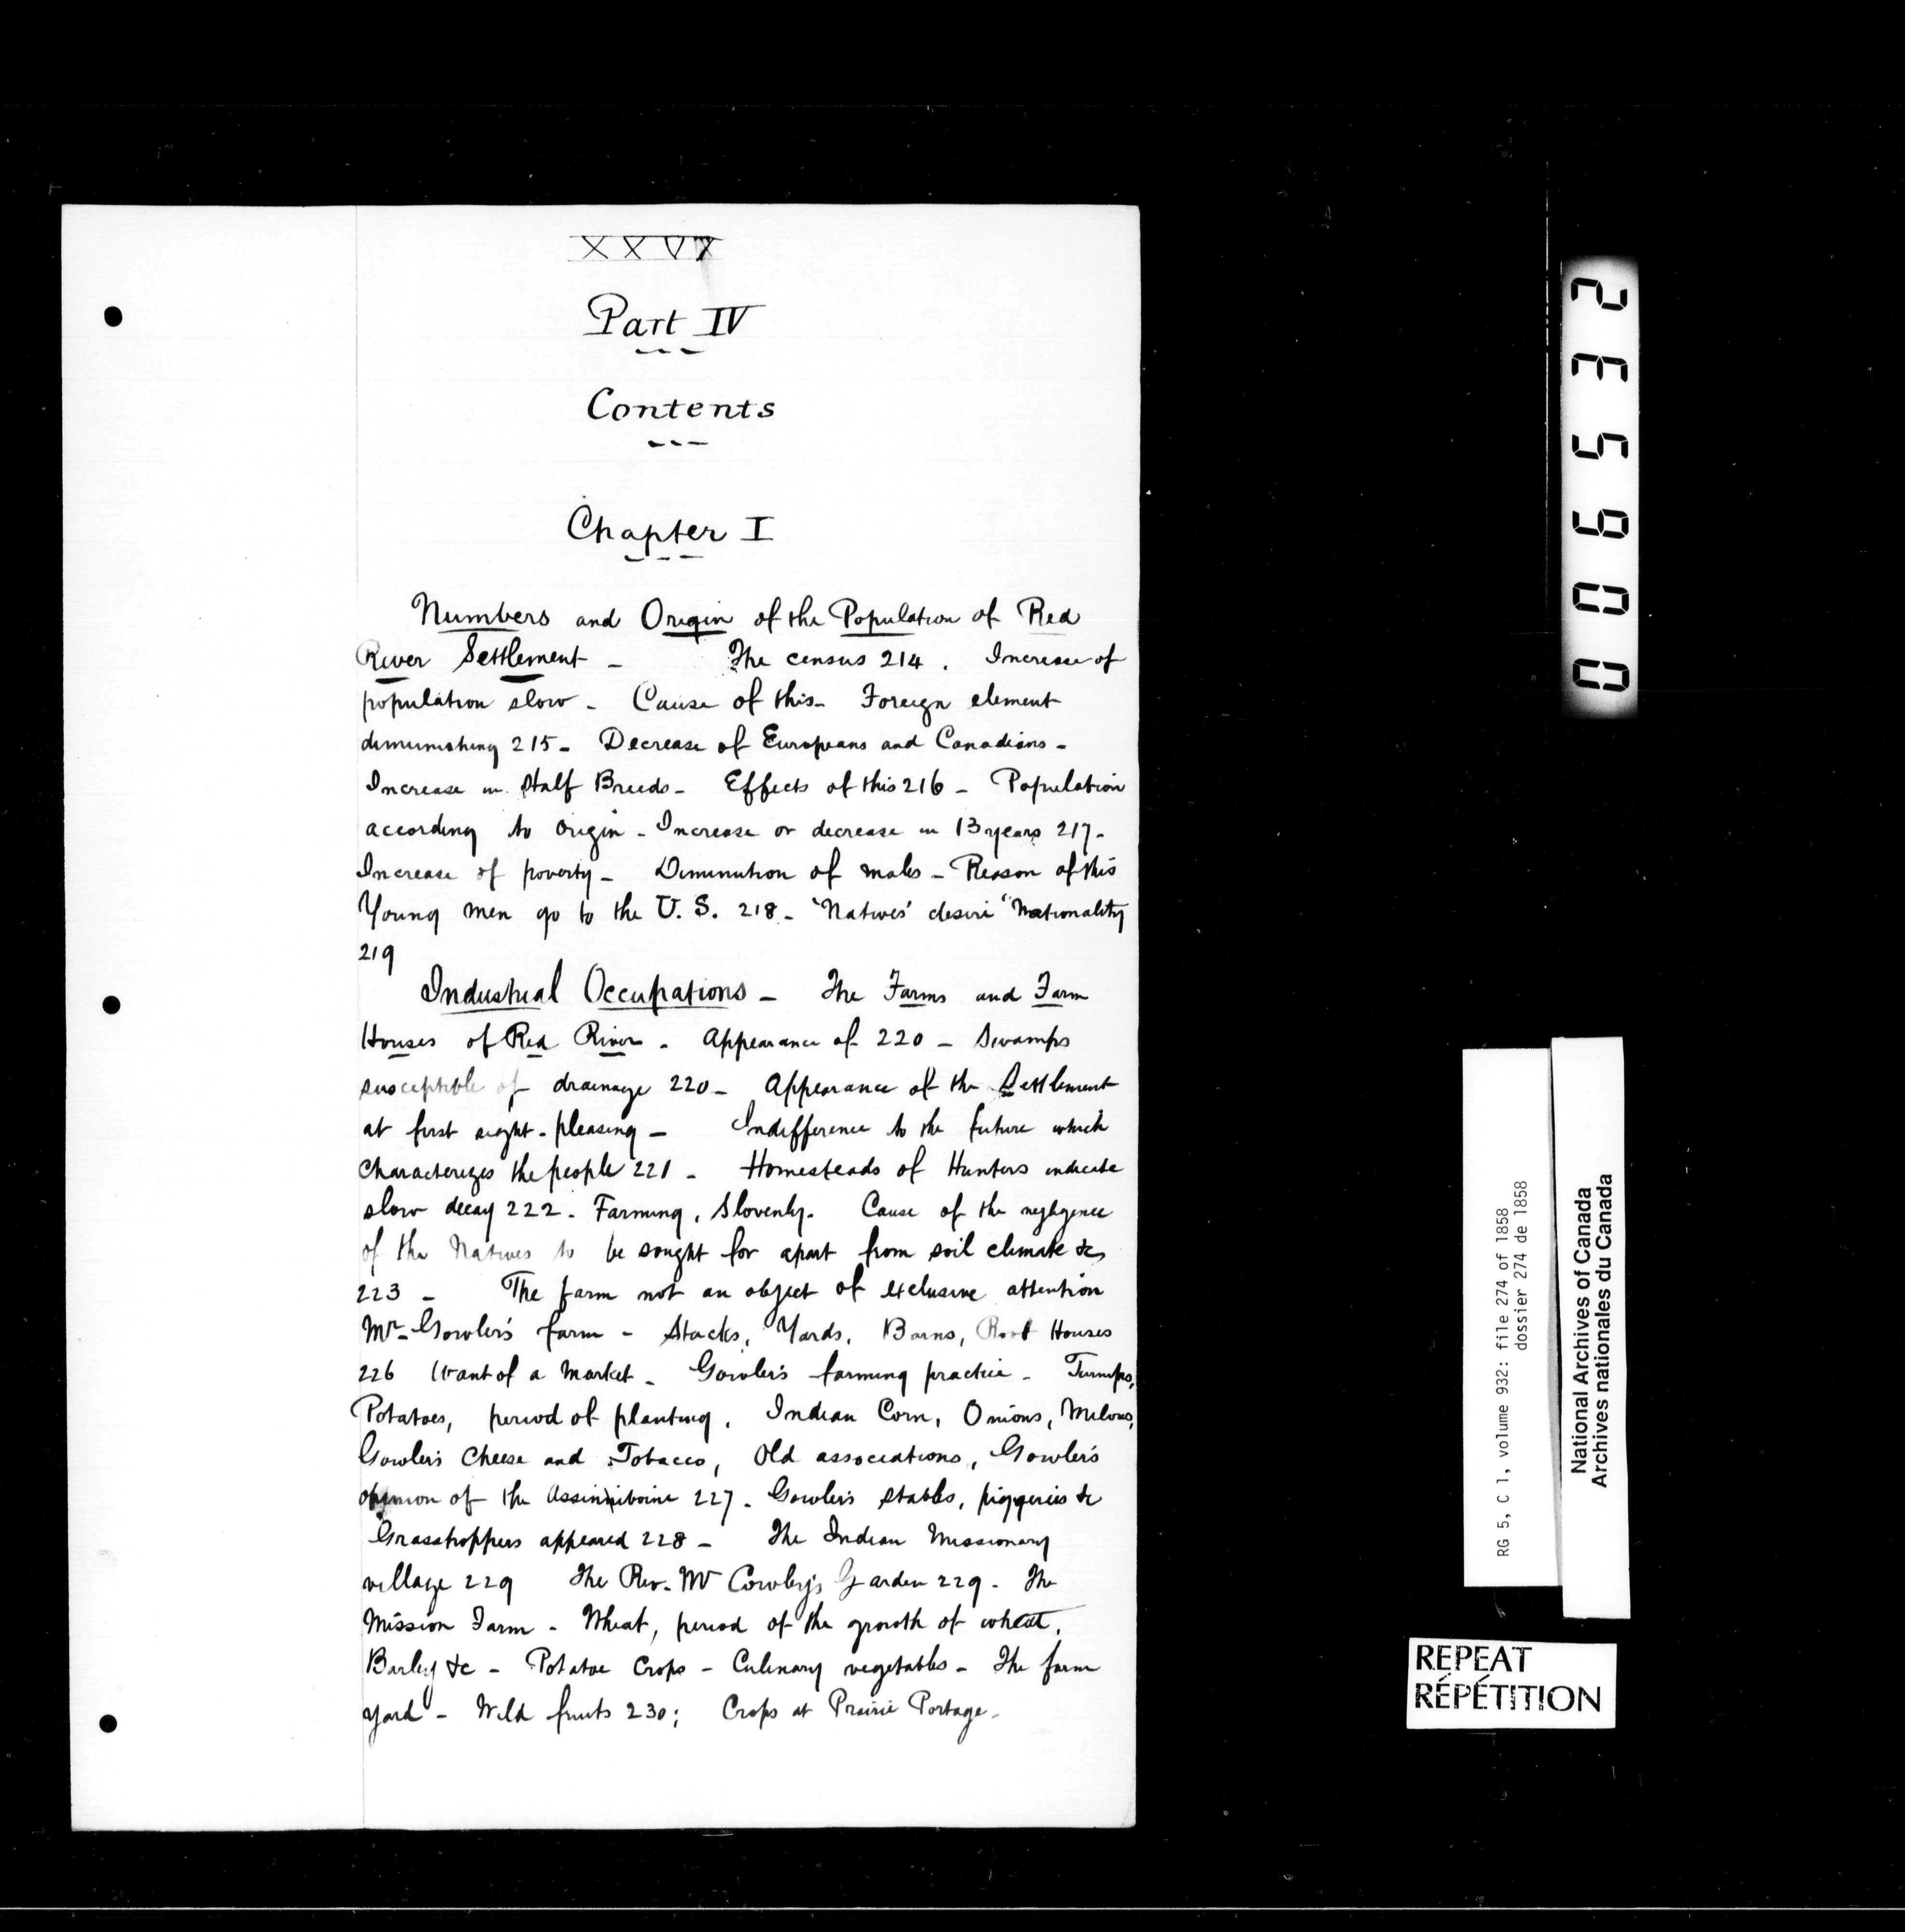 XXVI
Part IV
Contents
Chapter I
Numbers and Origin of the Population of Red
River Settlement - The census 214. Increase of
population slow - Cause of this - Foreign element
diminishing 215 - Decrease of Europeans and Canadians -
Increase in Half Breeds - Effects of this 216 - Population
according to origin - Increase or decrease in 13 years 217 -
Increase of poverty - Diminution of males - Reason of this
Young men go to the U. S. 218 - 'Natives' desire "Nationality
219
Industrial Occupations - The Farms and Farm
Houses of Red River - Appearance of 220 - Swamps
susceptible of drainage 220 - Appearance of the Settlement
at first sight - pleasing - Indifference to the future which
characterizes the people 221 - Homesteads of Hunters indicate
slow decay 222 - Farming, Slovenly. Cause of the negligence
of the Natives to be sought for apart from soil climate &c
223 - The farm not an object of exclusive attention
Mr. Gowler's farm - Stacks, Yards, Barns, Root Houses
226 Want of a market - Gowler's farming practice - Turnips,
Potatoes, period of planting, Indian Corn, Onions, Melons,
Gowler's Cheese and Tobacco, Old associations, Gowler's
opinion of the Assinniboine 227 - Gowler's stables, piggeries &c
Grasshoppers appeared 228 - The Indian Missionary
village 229 The Rev. Mr Cowley's Garden 229 - The
Mission Farm - Wheat, period of the growth of wheat,
Barley &c - Potatoe Crops - Culinary vegetables - The farm
yard - Wild fruits 230; Crops at Prairie Portage -
006532
RG 5, C 1, volume 932: file 274 of 1858
dossier 274 de 1858
National Archives of Canada
Archives nationales du Canada
REPEAT
RÉPÉTITION